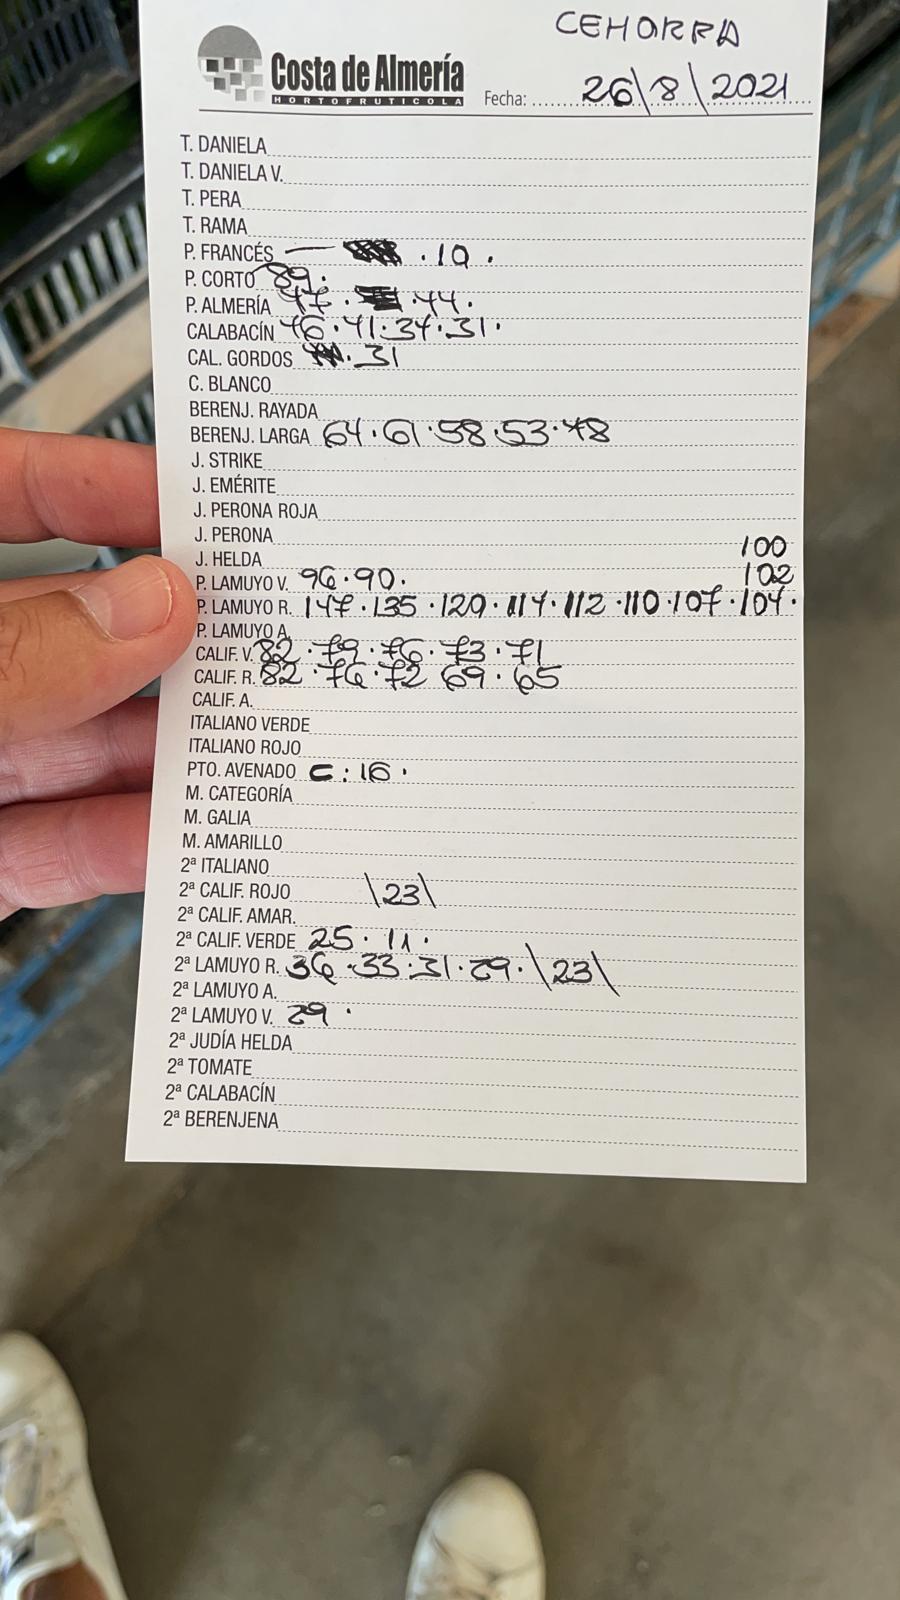 CEHORPA
Costa de Almería
HORTOFRUTICOLA
Fecha: 26\8\2021
T. DANIELA
T. DANIELA V.
T. PERA
T. RAMA
P. FRANCÉS — . 10 .
P. CORTO 89.
P. ALMERÍA 47 . . 44.
CALABACÍN 46 . 41 . 34 . 31 .
CAL. GORDOS . 31
C. BLANCO
BERENJ. RAYADA
BERENJ. LARGA 64 . 61 . 58 . 53 . 48
J. STRIKE
J. EMÉRITE
J. PERONA ROJA
J. PERONA
J. HELDA 100
P. LAMUYO V. 96 . 90 . 102
P. LAMUYO R. 147 . 135 . 120 . 114 . 112 . 110 . 107 . 104 .
P. LAMUYO A.
CALIF. V. 82 . 79 . 76 . 73 . 71
CALIF. R. 82 . 76 . 72 69 . 65
CALIF. A.
ITALIANO VERDE
ITALIANO ROJO
PTO. AVENADO C : 16 .
M. CATEGORÍA
M. GALIA
M. AMARILLO
2ª ITALIANO
2ª CALIF. ROJO \23\
2ª CALIF. AMAR.
2ª CALIF. VERDE 25 . 11 .
2ª LAMUYO R. 36 . 33 . 31 . 29 . \23\
2ª LAMUYO A.
2ª LAMUYO V. 29 .
2ª JUDÍA HELDA
2ª TOMATE
2ª CALABACÍN
2ª BERENJENA